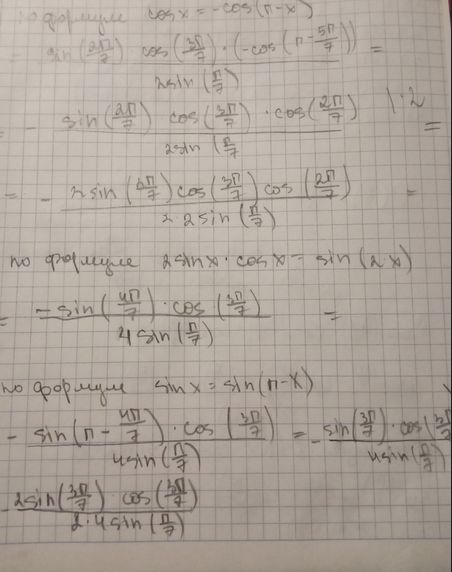 по формуле cos x = -cos(π-x)
= sin(2π/7) cos(3π/7)·(-cos(π-5π/7)) / 2sin(π/7) =
= - sin(2π/7) cos(3π/7)·cos(2π/7) / 2sin(π/7 |·2 =
= - 2sin(2π/7)cos(3π/7)cos(2π/7) / 2·2sin(π/7) =
по формуле 2sinx·cosx = sin(2·x)
= -sin(4π/7)·cos(3π/7) / 4sin(π/7) =
по формуле sinx=sin(π-x)
- sin(π-4π/7)·cos(3π/7) / 4sin(π/7) = - sin(3π/7)·cos(3π/ / 4sin(π/7)
- 2sin(3π/7)·cos(3π/7) / 2·4sin(π/7)